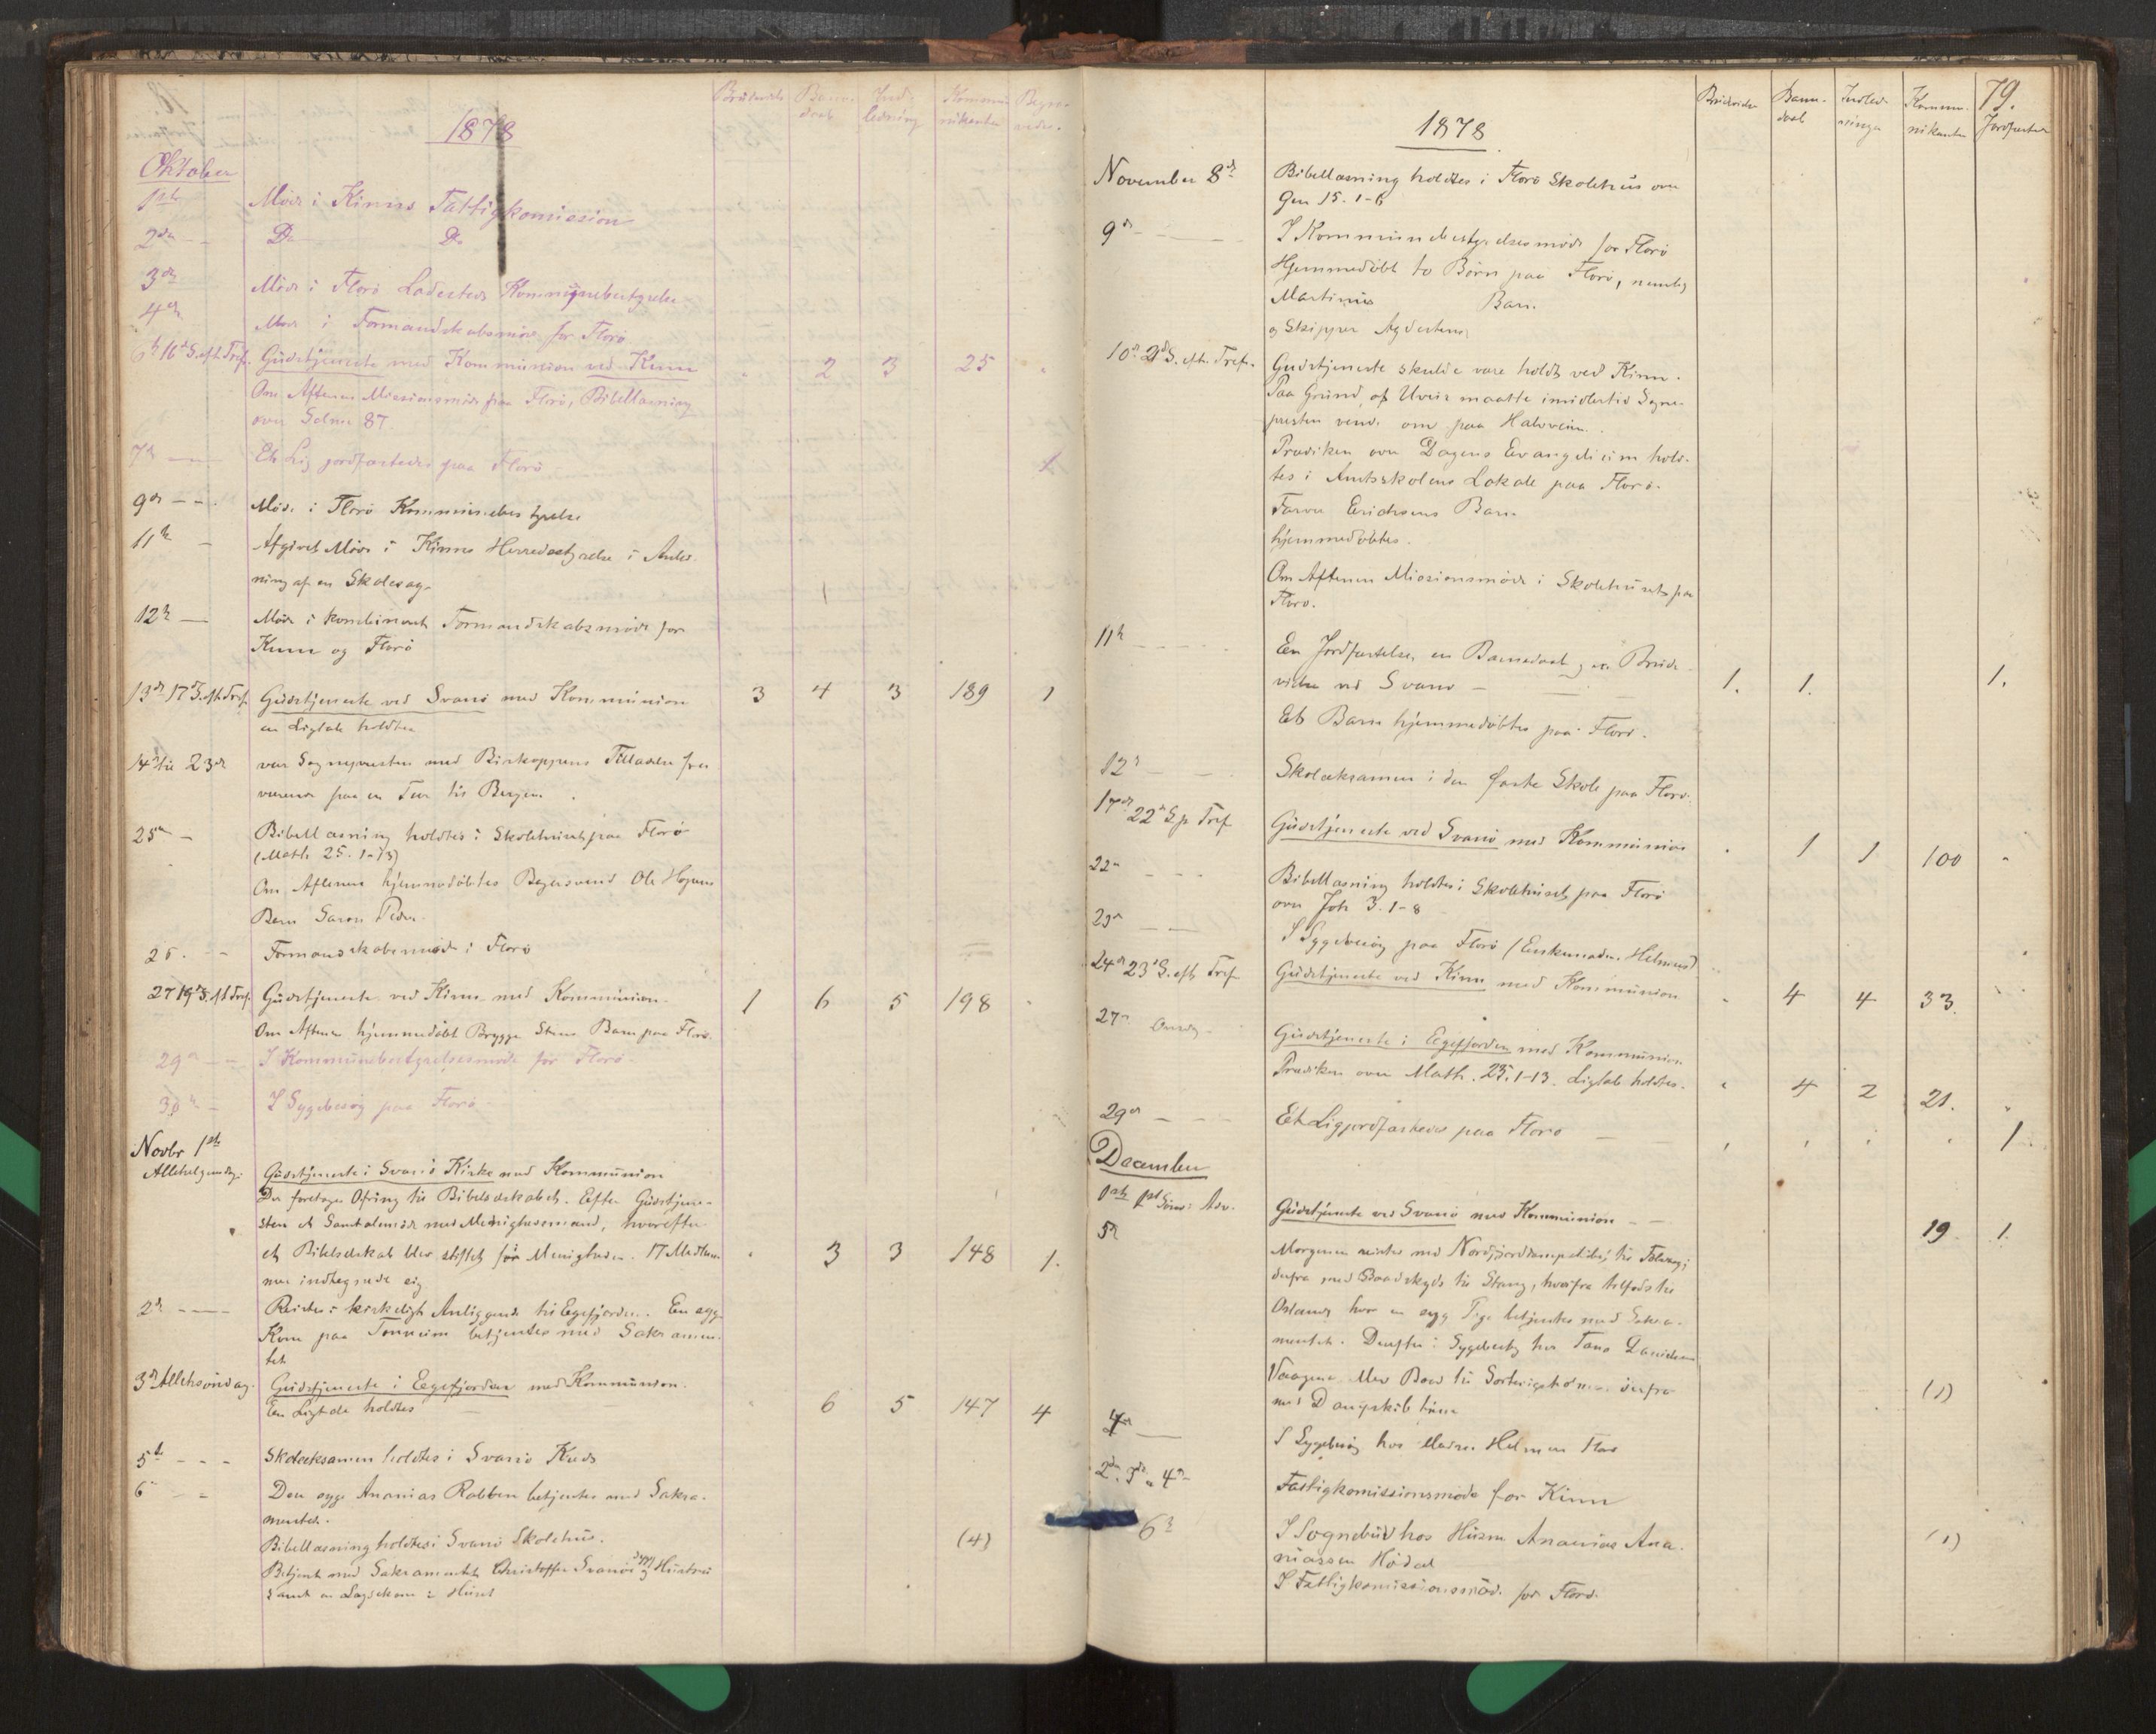 1878
Brudevielse Barne- Ind- Kommu- Begra-
daab ledning nikanter velse.
Oktober
1ste Møde i Kinns Fattigkomission
2den Do Do
3die Møde i Florø Ladesteds Kommunebestyrelse
4de Møde i Formandskabsmøde for Florø
6te 16de S. eft. Tref. Gudstjeneste med Kommunion ved Kinn " 2 3 25 "
Om Aftenen Missionsmøde paa Florø, Bibellæsning
over Salme 87
7de Et Lig jordfæstedes paa Florø 1
9de Møde i Florø Kommunebestyrelse
11te Afgivet Møde i Kinns Herredsstyrelse i Anled-
ning af en Skolesag.
12te Møde i kombineret Formandskabsmøde for
Kinn og Florø
13de 17de S. eft. Tref. Gudstjeneste ved Svanø med Kommunion 3 4 3 189 1
en Ligtale holdtes
14de til 23de var Sognepresten med Biskoppens Tilladelse fra-
værende paa en Tur til Bergen.
25de Bibellæsning holdtes i Skolehuset paa Florø
(Math 25. 1-13)
Om Aftenen hjemmedøbtes Ole
Barn Peder.
26. Formandskabsmøde i Florø
27 19de S. eft Tref. Gudstjeneste ved Kinn med Kommunion. 1 6 5 198 "
Om Aftenen hjemmedøbt Brygge Stens Barn paa Florø.
29de I Kommunebestyrelsesmøde for Florø
30te I Sygebesøg paa Florø
Novbr 1ste
Allehelgensdag. Gudstjeneste i Svanø Kirke med Kommunion
Der foretoges Ofring til Bibelselskabet. Efter Gudstjene-
sten et Samtalemøde med Menighedsmænd, hvorefter
et Bibelselskab blev stiftet for Menigheden. 17 Medlem- " 3 3 148 1.
mer indtegnede sig.
2de Reiste i kirkeligt Anliggende til Eegefjorden. En syg
Kone paa betjentes med Sakramen-
tet
3de Alleh. søndag. Gudstjeneste i Eegefjorden med Kommunion.
En Ligtale holdtes " 6 5 147 4
5te Skoleeksamen holdtes i Svanø Kreds
6te Den syge Ananias Rabben betjentes med Sakra-
mentet.
Bibellæsning holdtes i Svanø Skolehus. (4)
Betjent med Sakramentet Christoffer Svanø og Hustru
samt en i Huset
79.
1878
Brudevielse Barne- Indled- Kommu- Jordfæstelse
daab ninger nikanter
November 8de Bibellæsning holdtes i Florø Skolehus over
Gen 15. 1-6
9de I Kommunebestyrelsesmøde for Florø
Hjemmedøbt to Børn paa Florø, nemlig
Martinus Barn
og Skipper
10de 21de S. eft. Tref. Gudstjeneste skulde være holdt ved Kinn.
Paa Grund af Uveir maatte imidlertid Sogne-
presten vende om paa Halvveien.
Prædiken over Dagens Evangelium hold-
tes i Amtsskolens Lokale paa Florø.
Farver Erichsens Barn
hjemmedøbtes.
Om Aftenen Missionsmøde i Skolehuset paa
Florø.
11te En Jordfæstelse, en Barnedaab og en Brude-
vielse ved Svanø 1. 1. 1.
Et Barn hjemmedøbtes paa Florø.
12te Skoleeksamen i den faste Skole paa Florø.
17de 22de S p Tref Gudstjeneste ved Svanø med Kommunion " 1 1 100 "
22de Bibellæsning holdtes i Skolehuset paa Florø
over Joh 3. 1-8
23de I Sygebesøg paa Florø (Enkemadm. Helmers)
24de 23de S. eft Tref Gudstjeneste ved Kinn med Kommunion " 4 4 33. "
27de Onsdag Gudstjeneste i Eegefjorden med Kommunion
Prædiken over Math. 25. 1-13. Ligtale holdtes. " 4 2 21. "
29de Et Lig jordfæstedes paa Florø " " " " 1
December
1ste 1ste Sønd. i Adv. Gudstjeneste ved Svanø med Kommunion 19 1.
5te Morgenen reiste med til
derfra med Baadskyds til Stang, hvorfra tilfods til
hvor en syg Pige betjentes med Sakra-
mentet. Derefter i Sygebesøg hos
Vaagene. Med Baad til derfra
med Dampskib hjem (1)
4de I Sygebesøg hos Madm Helmers Florø
2den, 3die og 4de Fattigkomissionsmøde for Kinn
6te I Sognebud hos Husm. Ananias Ana-
niassen Hødal (1)
I Fattigkomissionsmøde for Florø